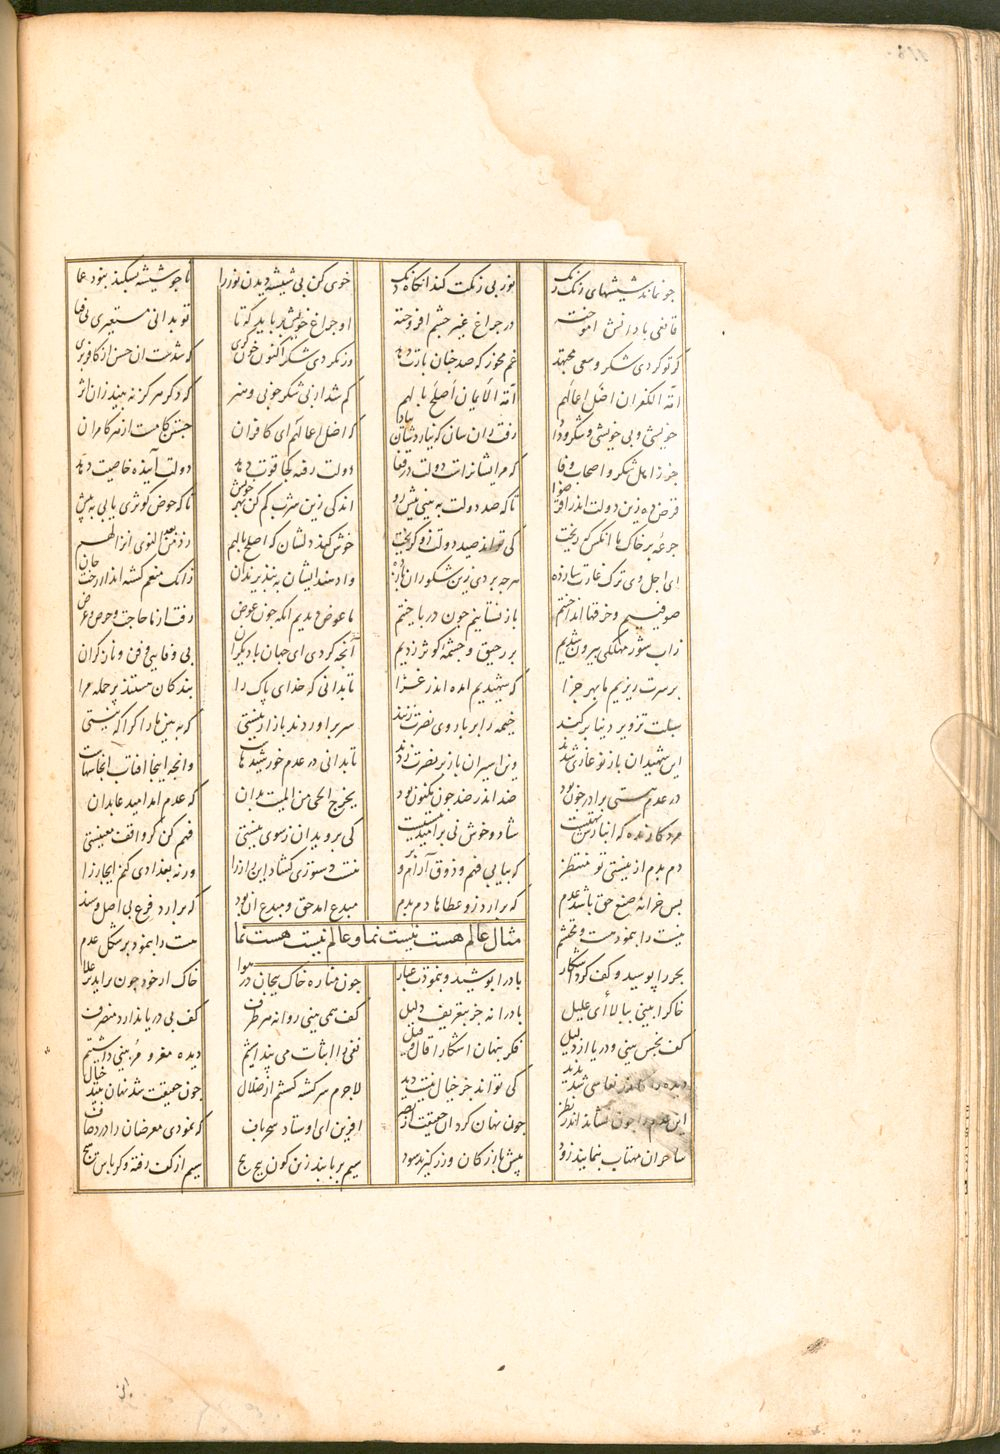 جو نماند شیشهای رنک رنک نور بی رنکت کند انکاه دنک خوی کن بی شیشه دیدن نور را تا جو شیشه بشکند نبود عما
قانعی با دانش اموخته در جراغ غیر چشم افروخته او جراغ خویش برباید که تا تو بدانی مستعیری نی فتا
کر تو کردی شکر و سعی مجتهد غم مخور که صد جنان بازت دهد ور نکردی شکر اکنون خون کری که شدست ان حسن از کافر بری
امة الکفران اضل اعمالهم امة الایمان اصلح بالهم کم شد از بی شکر خوبی و هنر که دکر هرکز نه بیند زان اثر
خویشی و بی خویشی و شکر و وداد رفت زان سان که نیارد شان بیاد که اضل اعمالهم ای کافران جستن کامست از هر کامران
جز ز اهل شکر و اصحاب وفا که مر ایشانراست دولت در قفا دولت رفته کجا قوت دهد دولت آینده خاصیت دهد
قرض ده زین دولت اندر اقرضوا تا که صد دولت به بینی پیش رو اندکی زین شرب کم کن بهر خویش تا که حوض کوثری یابی به پیش
جرعه بر خاک ما انکس که ریخت کی تواند صید دولت زو کریخت خوش کند دلشان که اصلح بالهم رد من بعد التوی انزالهم
ای اجل وی ترک غارت ساز ده هرجه بردی زین شکوران باز ده وا دهد ایشان به نپذیرند ان زانک منعم کشته اند از رخت جان
صوفییم و خرقها انداختیم باز نستانیم جون درباختیم ما عوض دیدیم انکه جون عوض رفت از ما حاجت و حرص و غرض
زاب شور مهلکی بیرون شدیم بر رحیق و چشمهٔ کوثر زدیم آنجه کردی ای جهان با دیکران بی وفایی و فن و ناز کران
بر سرت ریزیم ما بهر جزا که شهیدیم امده اندر غزا تا بدانی که خدای پاک را بندکان هستند پر حمله مرا
سبلت تزویر دنیا بر کنند خیمه را بر باروی نصرت زنند سر براوردند باز از نیستی که ببین ما را کر اکمه نیستی
این شهیدان باز نو غازی شدند وین اسیران باز بر نصرت زدند تا بدانی در عدم خورشیدهاست وانجه اینجا افتاب انجا سهاست
در عدم هستی برادر جون بود ضد اندر ضد جون مکنون بود یخرج الحی من المیت بدان که عدم امد امید عابدان
مرد کارنده که انبارش تهیست شاد و خوش نی بر امید نیستیست کی بروید ان ز سوی نیستی فهم کن کر واقف معنیستی
دم بدم از نیستی تو منتظر که بیابی فهم و ذوق آرام و نیست دستوری کشاد این راز را ورنه بغدادی کنم ابخاز را
پس خزانهٔ صنع حق باشد عدم که برارد زو عطاها دم بدم مبدع امد حق و مبدع ان بود که برارد فرع بی اصل و سند
مثال عالم هست نیست نما و عالم نیست هست نما
نیست را بنمود هست و محتشم هست را بنمود بر شکل عدم
بحر را پوشید و کف کرد اشکار باد را پوشید و بنمودت غبار جون مناره خاک پیجان در هوا خاک از خود جون براید بر علا
خاک را بینی ببالا ای علیل باد را نه جز بتعریف دلیل کف همی بینی روانه هر طرف کف بی دریا ندارد منصرف
کف بحس بینی و دریا از دلیل فکر پنهان اشکارا قال و قیل نفی را اثبات می پنداشتیم دیده معدوم بینی داشتیم
دیده که اندر نعاسی شد پدید کی تواند جز خیال نیست دید لاجرم سرکشته کشتیم از ضلال جون حقیقت شد نهان پیدا خیال
این عدم را جون نشاند اندر نظر جون نهان کرد ان حقیقت از بصر افرین ای اوستاد سحرباف که نمودی معرضان را درد صاف
ساحران مهتاب پیمایند زود پیش بازرکان و زر کیرند سود سیم بربایند زین کون پیج پیج سیم از کف رفته و کرباس هیج